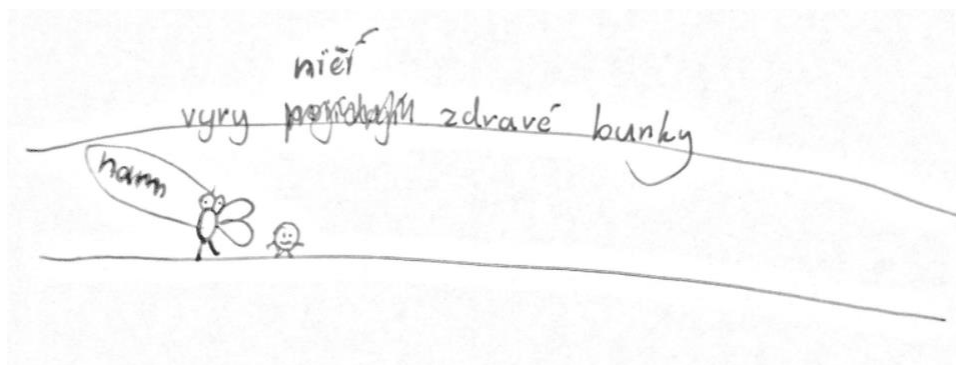 ničí
vyry zdravé bunky
hamm